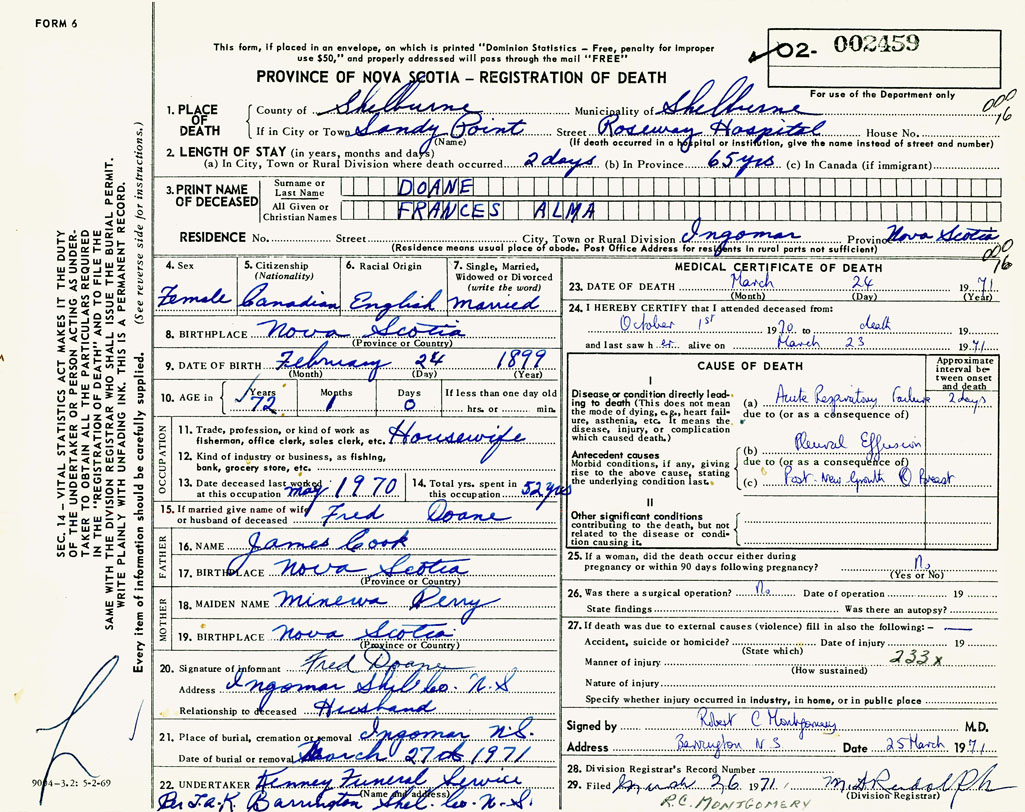 FORM 6
This form, if placed in an envelope, on which is printed "Dominion Statistics – Free, penalty for improper
use $50," and properly addressed will pass through the mail "FREE"
02- 002459
For use of the Department only
PROVINCE OF NOVA SCOTIA – REGISTRATION OF DEATH
000
76
1. PLACE OF DEATH
County of Shelburne Municipality of Shelburne
If in City or Town Sandy Point Street Roseway Hospital House No.
(Name) (If death occurred in a hospital or institution, give the name instead of street and number)
2. LENGTH OF STAY (in years, months and days)
(a) In City, Town or Rural Division where death occurred 2 days (b) In Province 65 yrs (c) In Canada (if immigrant)
3. PRINT NAME OF DECEASED
Surname or Last Name DOANE
All Given or Christian Names FRANCES ALMA
RESIDENCE No. Street City, Town or Rural Division Ingomar Province Nova Scotia
(Residence means usual place of abode. Post Office Address for residents in rural parts not sufficient)
000
76
4. Sex Female
5. Citizenship (Nationality) Canadian
6. Racial Origin English
7. Single, Married, Widowed or Divorced (write the word) Married
8. BIRTHPLACE Nova Scotia
(Province or Country)
9. DATE OF BIRTH February 24 1899
(Month) (Day) (Year)
10. AGE in Years 72 Months 1 Days 0 If less than one day old
hrs. or min.
OCCUPATION
11. Trade, profession, or kind of work as
fisherman, office clerk, sales clerk, etc. Housewife
12. Kind of industry or business, as fishing,
bank, grocery store, etc.
13. Date deceased last worked at this occupation May 1970
14. Total yrs. spent in this occupation 52 yrs
15. If married give name of wife
or husband of deceased Fred Doane
FATHER
16. NAME James Cook
17. BIRTHPLACE Nova Scotia
(Province or Country)
MOTHER
18. MAIDEN NAME Minewa Perry
19. BIRTHPLACE Nova Scotia
(Province or Country)
20. Signature of informant Fred Doane
Address Ingomar Shel Co. N.S
Relationship to deceased Husband
21. Place of burial, cremation or removal Ingomar N.S.
Date of burial or removal March 27th 1971
22. UNDERTAKER Kenney Funeral Service
(Name and address)
Barrington Shel Co. N.S.
MEDICAL CERTIFICATE OF DEATH
23. DATE OF DEATH March 24 1971
(Month) (Day) (Year)
24. I HEREBY CERTIFY that I attended deceased from:
October 1st 1970 to death 19
and last saw h er alive on March 23 1971
CAUSE OF DEATH
Approximate interval between onset and death
I
Disease or condition directly leading to death (This does not mean the mode of dying, e.g., heart failure, asthenia, etc. It means the disease, injury, or complication which caused death.)
(a) Acute Respiratory Failure 2 days
due to (or as a consequence of)
Antecedent causes
Morbid conditions, if any, giving rise to the above cause, stating the underlying condition last.
(b) Pleural Effusion
due to (or as a consequence of)
(c) Past New Growth Breast
II
Other significant conditions
contributing to the death, but not related to the disease or condition causing it.
25. If a woman, did the death occur either during
pregnancy or within 90 days following pregnancy? No
(Yes or No)
26. Was there a surgical operation? No Date of operation 19
State findings Was there an autopsy?
27. If death was due to external causes (violence) fill in also the following: –
Accident, suicide or homicide? Date of injury 19
(State which)
Manner of injury 233x
(How sustained)
Nature of injury
Specify whether injury occurred in industry, in home, or in public place
Signed by Robert C Montgomery M.D.
Address Barrington N S Date 25 March 1971
28. Division Registrar's Record Number
29. Filed March 26 1971.
(Division Registrar)
R.C. MONTGOMERY
SEC. 14 – VITAL STATISTICS ACT MAKES IT THE DUTY
OF THE UNDERTAKER OR PERSON ACTING AS UNDER-
TAKER TO OBTAIN ALL THE PARTICULARS REQUIRED
IN THE "REGISTRATION OF DEATH" AND TO FILE THE
SAME WITH THE DIVISION REGISTRAR WHO SHALL ISSUE THE BURIAL PERMIT.
WRITE PLAINLY WITH UNFADING INK. THIS IS A PERMANENT RECORD.
Every item of information should be carefully supplied. (See reverse side for instructions.)
9004-3.2: 5-2-69